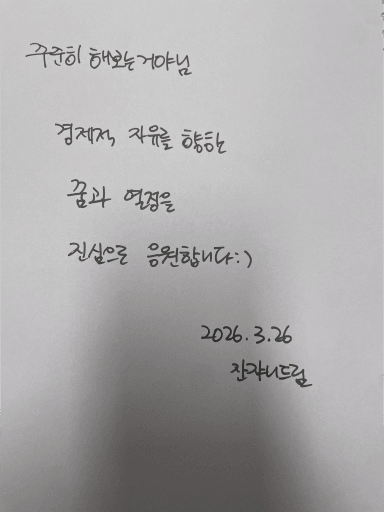 꾸준히 해보는거야님
경제적 자유를 향한
꿈과 열정을
진심으로 응원합니다:)
2026.3.26
잔쟈니드림